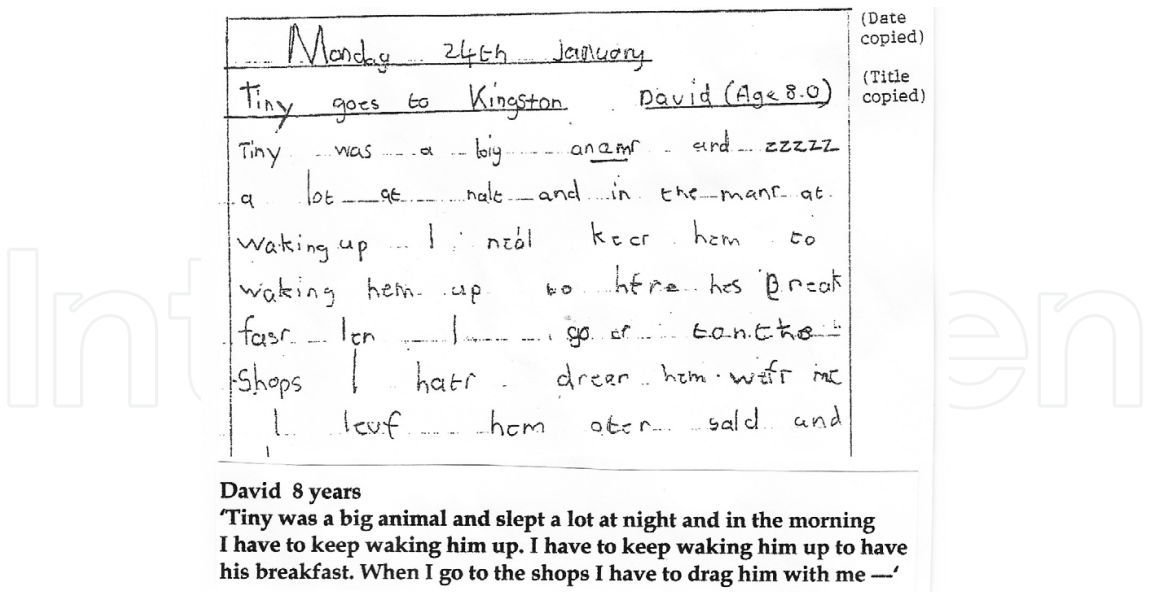 Monday 24th January
(Date
copied)
Tiny goes to Kingston. David (Age 8.0)
(Title
copied)
Tiny was a big anamr and zzzzz
a lot at nalt and in the manr at
waking up I neól keer hem to
waking hem up to hfre hes Break
fasr len I go er tonthe
shops I hatr dreer hem weft me
I leuf hem oter sald and
David 8 years
‘Tiny was a big animal and slept a lot at night and in the morning
I have to keep waking him up. I have to keep waking him up to have
his breakfast. When I go to the shops I have to drag him with me —‘